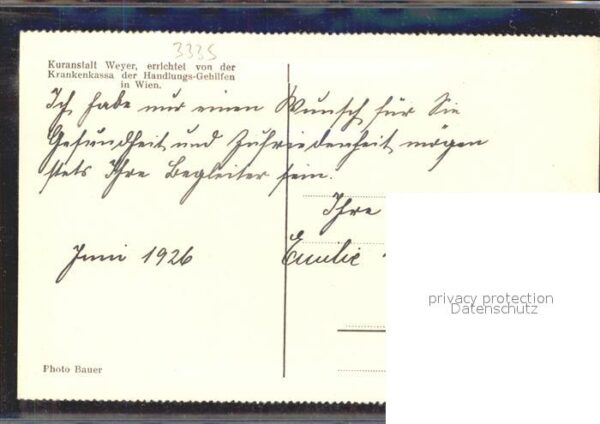 3335
Kuranstalt Weyer, errichtet von der
Krankenkassa der Handlungs-Gehilfen
in Wien.
Ich habe nur einen Wunsch für Sie
Gesundheit und Zufriedenheit mögen
stets Ihre Begleiter sein.
Ihre
Juni 1926 Emilie
privacy protection
Datenschutz
Photo Bauer